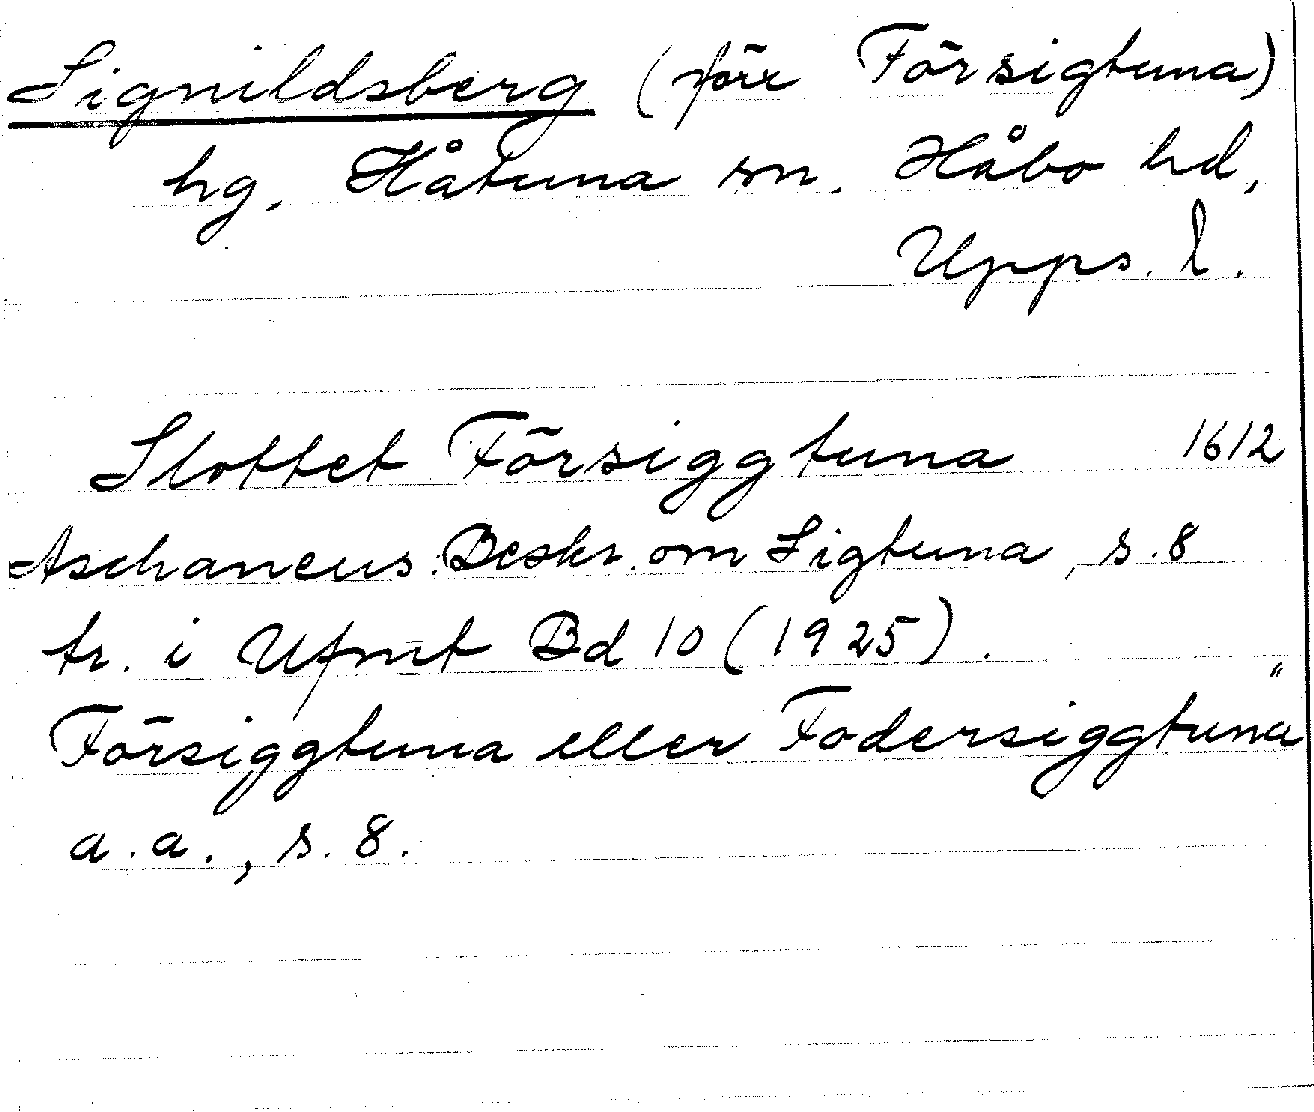 Signildsberg (förr Försigtuna)
hg. Håtuna sn. Håbo hd,
Upps. l.
Slottet Försiggtuna 1612
Aschaneus. Beskr. om Sigtuna, s. 8
tr. i Ufmt Bd 10 (1925).
Försiggtuna eller Fodersiggtuna "
a.a., s. 8.